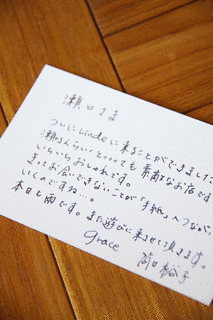 瀬口さま
ついにLindelに来ることができました
瀬口さんらしいとっても素敵なお店です
いちいちおしゃれです。
きってお店できないことが「手紙」へつなが
いくのですね…。
本日も雨です。また遊びに来させて頂きます。
grace
裕子